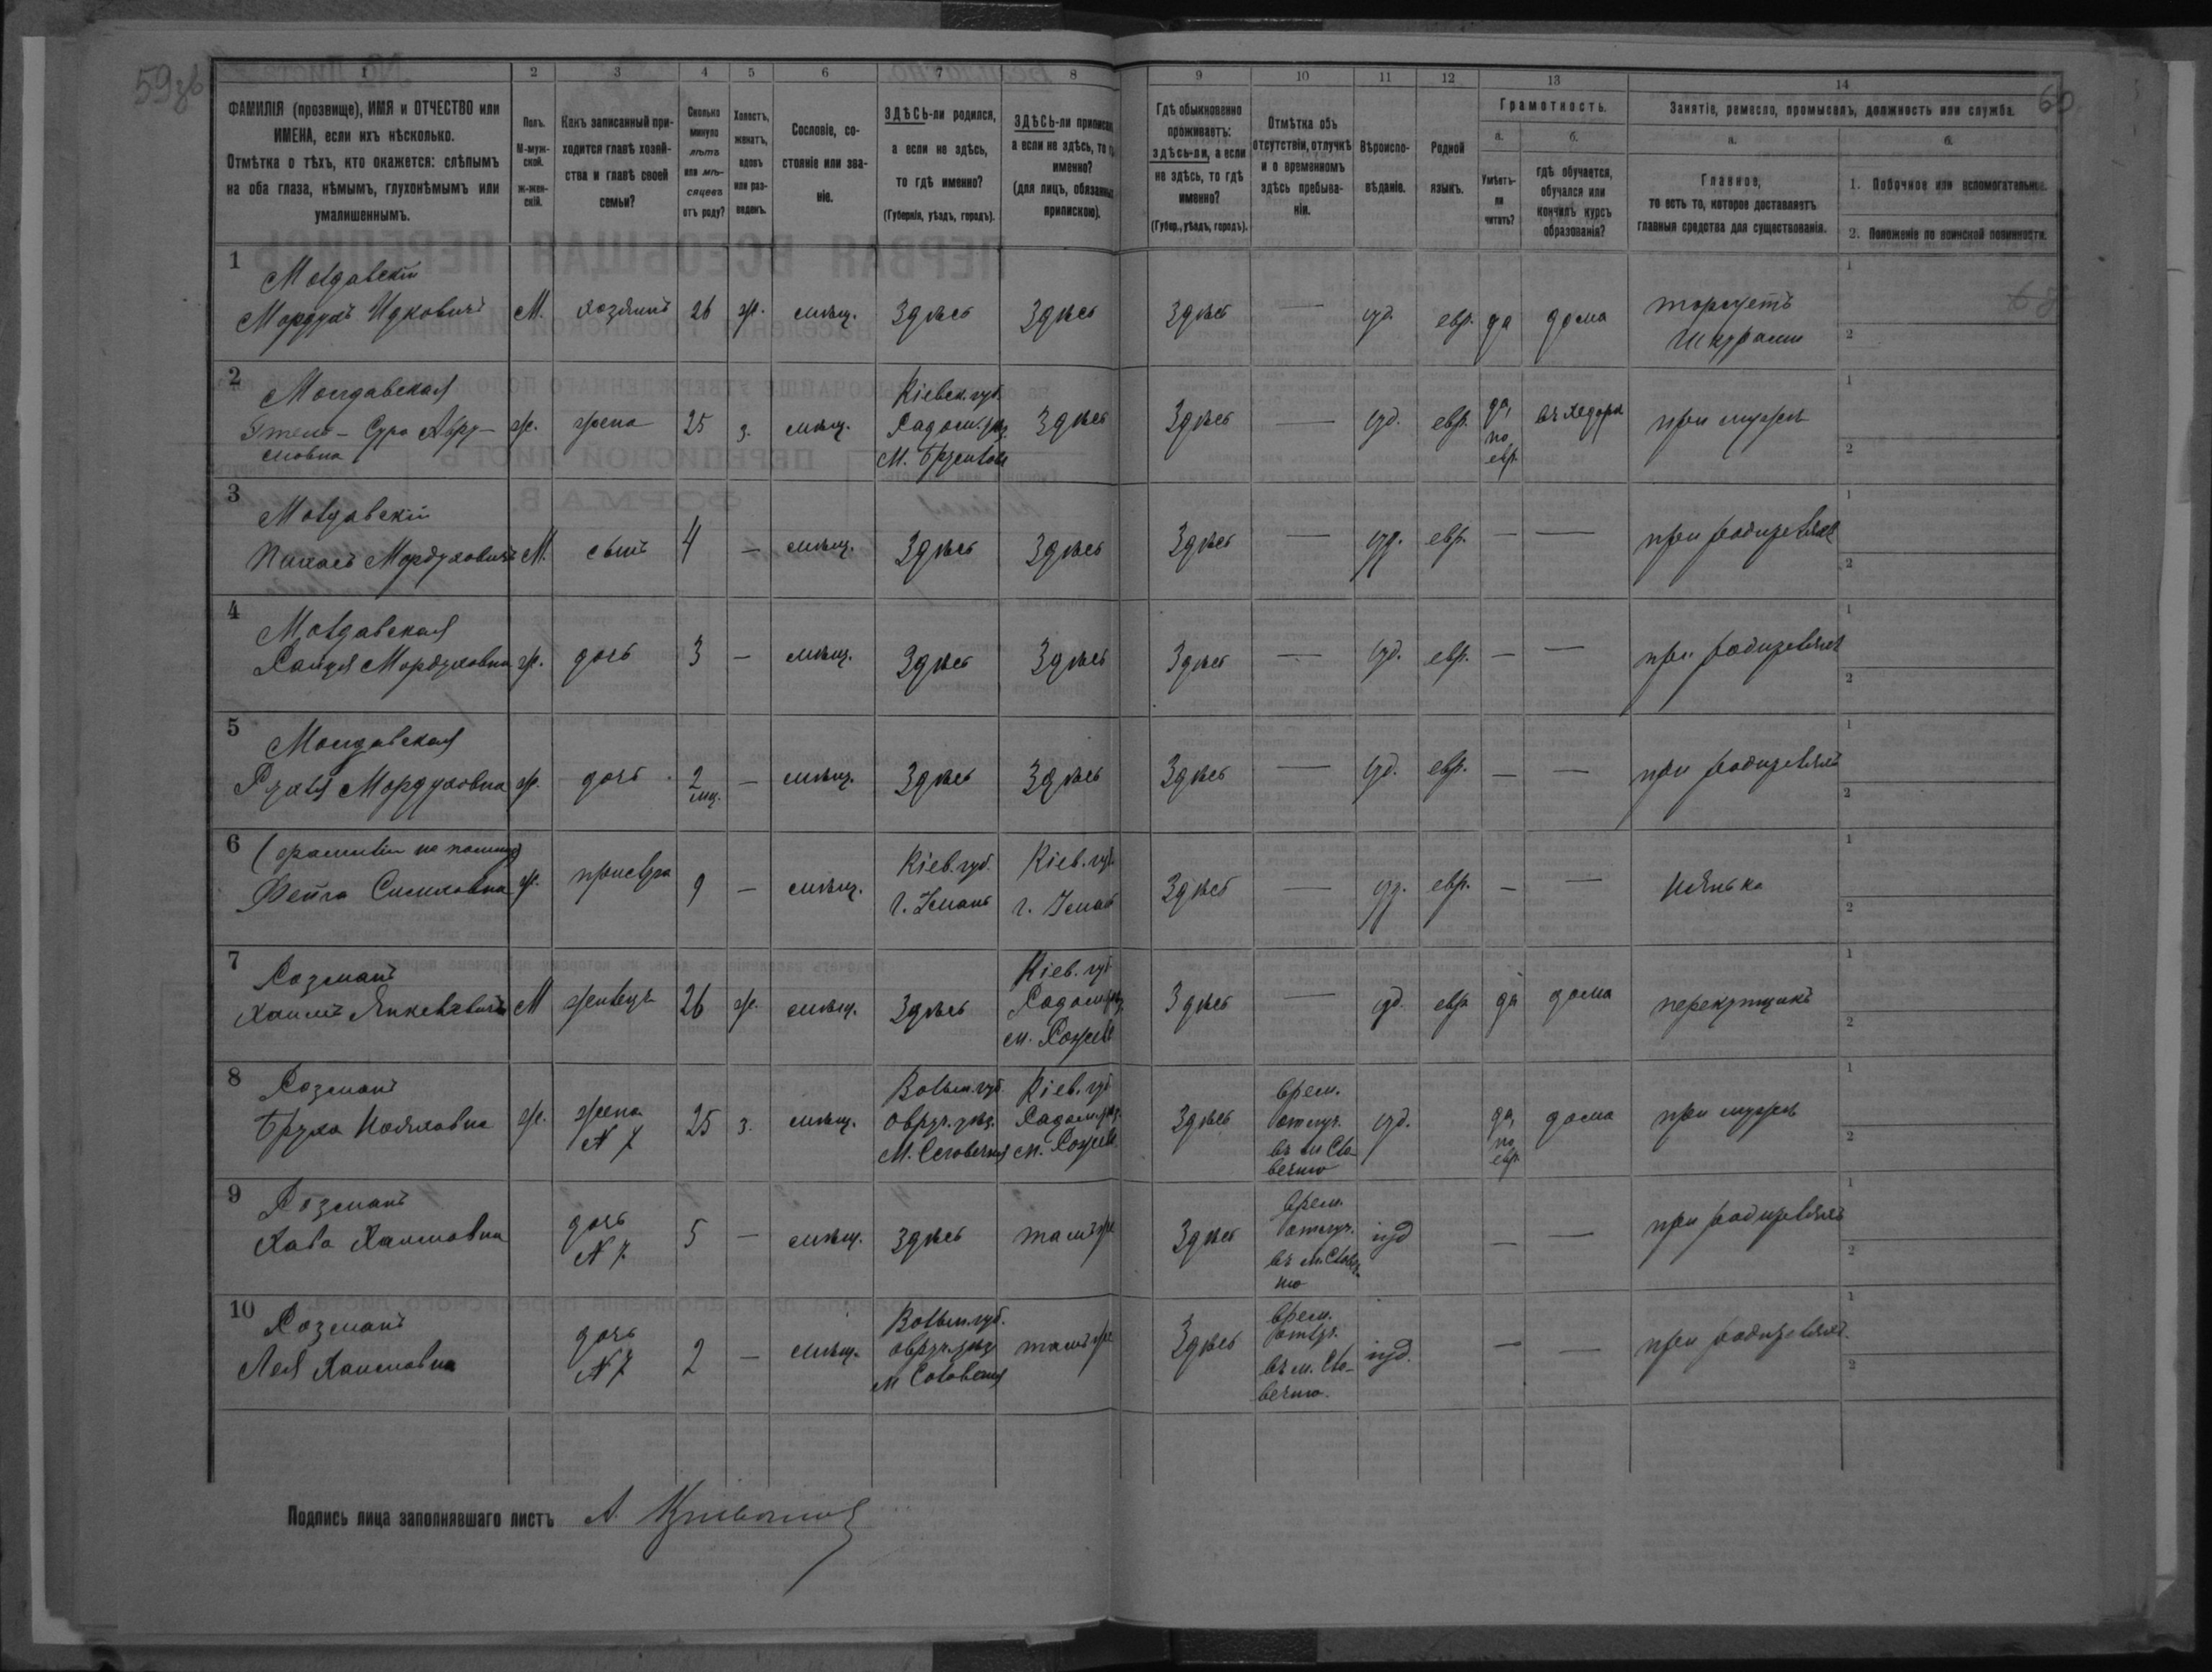 59зв
60
1 2 3 4 5 6 7 8 9 10 11 12 13 14
ФАМИЛІЯ (прозвище), ИМЯ и ОТЧЕСТВО или
ИМЕНА, если ихъ нѣсколько.
Отмѣтка о тѣхъ, кто окажется: слѣпымъ
на оба глаза, нѣмымъ, глухонѣмымъ или
умалишеннымъ.
Полъ.
М-муж-
ской.
ж-жен-
скій.
Какъ записанный при-
ходится главѣ хозяй-
ства и главѣ своей
семьи?
Сколько
минуло
лѣтъ
или мѣ-
сяцевъ
отъ роду?
Холостъ,
женатъ,
вдовъ
или раз-
веденъ.
Сословіе, со-
стояніе или зва-
ніе.
ЗДѢСЬ-ли родился,
а если не здѣсь,
то гдѣ именно?
(Губернія, уѣздъ, городъ).
ЗДѢСЬ-ли приписан
а если не здѣсь, то г
именно?
(для лицъ, обязанных
припискою).
Гдѣ обыкновенно
проживаетъ:
здѣсь-ли, а если
не здѣсь, то гдѣ
именно?
(Губер., уѣздъ, городъ).
Отмѣтка объ
отсутствіи, отлучкѣ
и о временномъ
здѣсь пребыва-
ніи.
Вѣроиспо-
вѣданіе.
Родной
языкъ.
Грамотность.
а. б.
Умѣетъ-
ли
читать?
гдѣ обучается,
обучался или
кончилъ курсъ
образованія?
Занятіе, ремесло, промыселъ, должность или служба.
а. б.
Главное,
то есть то, которое доставляетъ
главныя средства для существованія.
1. Побочное или вспомогательное.
2. Положеніе по воинской повинности.
1 Молдавскій
Мордухъ Ицковичъ М. хозяинъ 26 ж. мѣщ. Здѣсь Здѣсь Здѣсь — іуд. евр. да дома торгуетъ
шкурами
2 Молдавская
Сура
ж. жена 25 з. мѣщ. Кіевск. губ.
Радом. уѣз.
Здѣсь Здѣсь — іуд. евр. да,
по
евр.
въ хедерѣ при мужѣ
3 Молдавскій
Пахась Мордуховичъ М. сынъ 4 — мѣщ. Здѣсь Здѣсь Здѣсь — іуд. евр. — — при родителяхъ
4 Молдавская
Мордуховна ж. дочь 3 — мѣщ. Здѣсь Здѣсь Здѣсь — іуд. евр. — — при родителяхъ
5 Молдавская
Рухля Мордуховна ж. дочь 2
мц. — мѣщ. Здѣсь Здѣсь Здѣсь — іуд. евр. — — при родителяхъ
6 (фамиліи не помнитъ)
Фейга ж. прислуга 9 — мѣщ. Кіев. губ.
г. Умань
Кіев. губ.
г. Умань
Здѣсь — іуд. евр. — — нянька
7 Розманъ
Хаимъ Янкелевичъ М жилецъ 26 ж. мѣщ. Здѣсь Кіев. губ.
Радом. уѣз.
м.
Здѣсь — іуд. евр да дома перекупщикъ
8 Розманъ
Бруха ж. жена
N 7
25 з. мѣщ. Волын. губ.
Овруч. уѣз.
м. Словечна
Кіев. губ
Радом. уѣз.
м.
Здѣсь врем.
отлуч.
въ м. Сло-
вечно
іуд. да,
по
евр.
дома при мужѣ
9 Розманъ
Хава Хаимовна дочь
N 7
5 — мѣщ. Здѣсь тамъ же Здѣсь врем.
отлуч.
въ м. Словеч-
но
іуд — — при родителяхъ
10 Розманъ
Лея Хаимовна дочь
N 7
2 — мѣщ. Волын. губ.
Овруч. уѣз
м Словечна
тамъ же Здѣсь врем.
отлуч.
въ м. Сло-
вечно.
іуд. — — при родителях.
Подпись лица заполнявшаго листъ А.